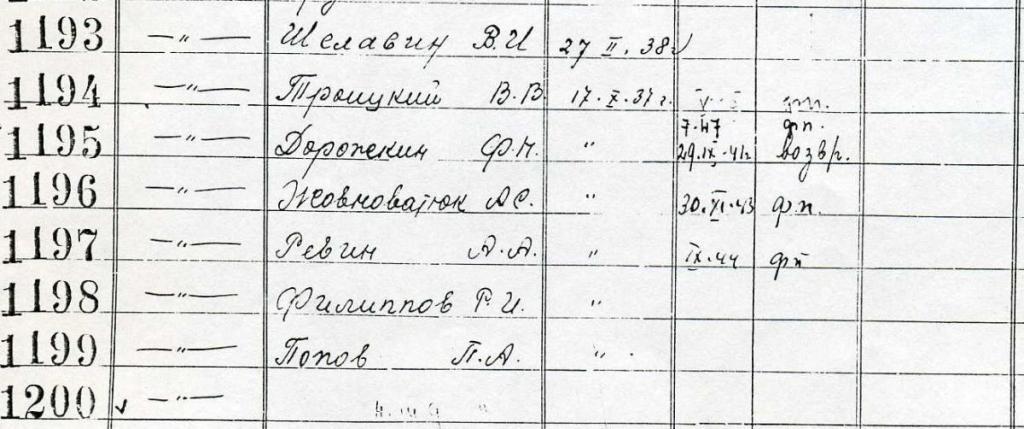 1193 —"— Шелавин В.И 27 II. 38г
1194 —"— Троицкий В.В 17. X. 37г. фп.
7.47 фп.
1195 —"— Дорожкин Ф.Н. " 29.IX.41г возвр.
1196 —"— Жовноватюк А.С. " 30.XI.43 фп.
1197 —"— Ревин А.А. " IX.44 фп
1198 —"— Филиппов Г.И. "
1199 —"— Попов П.А. "
1200 —"—